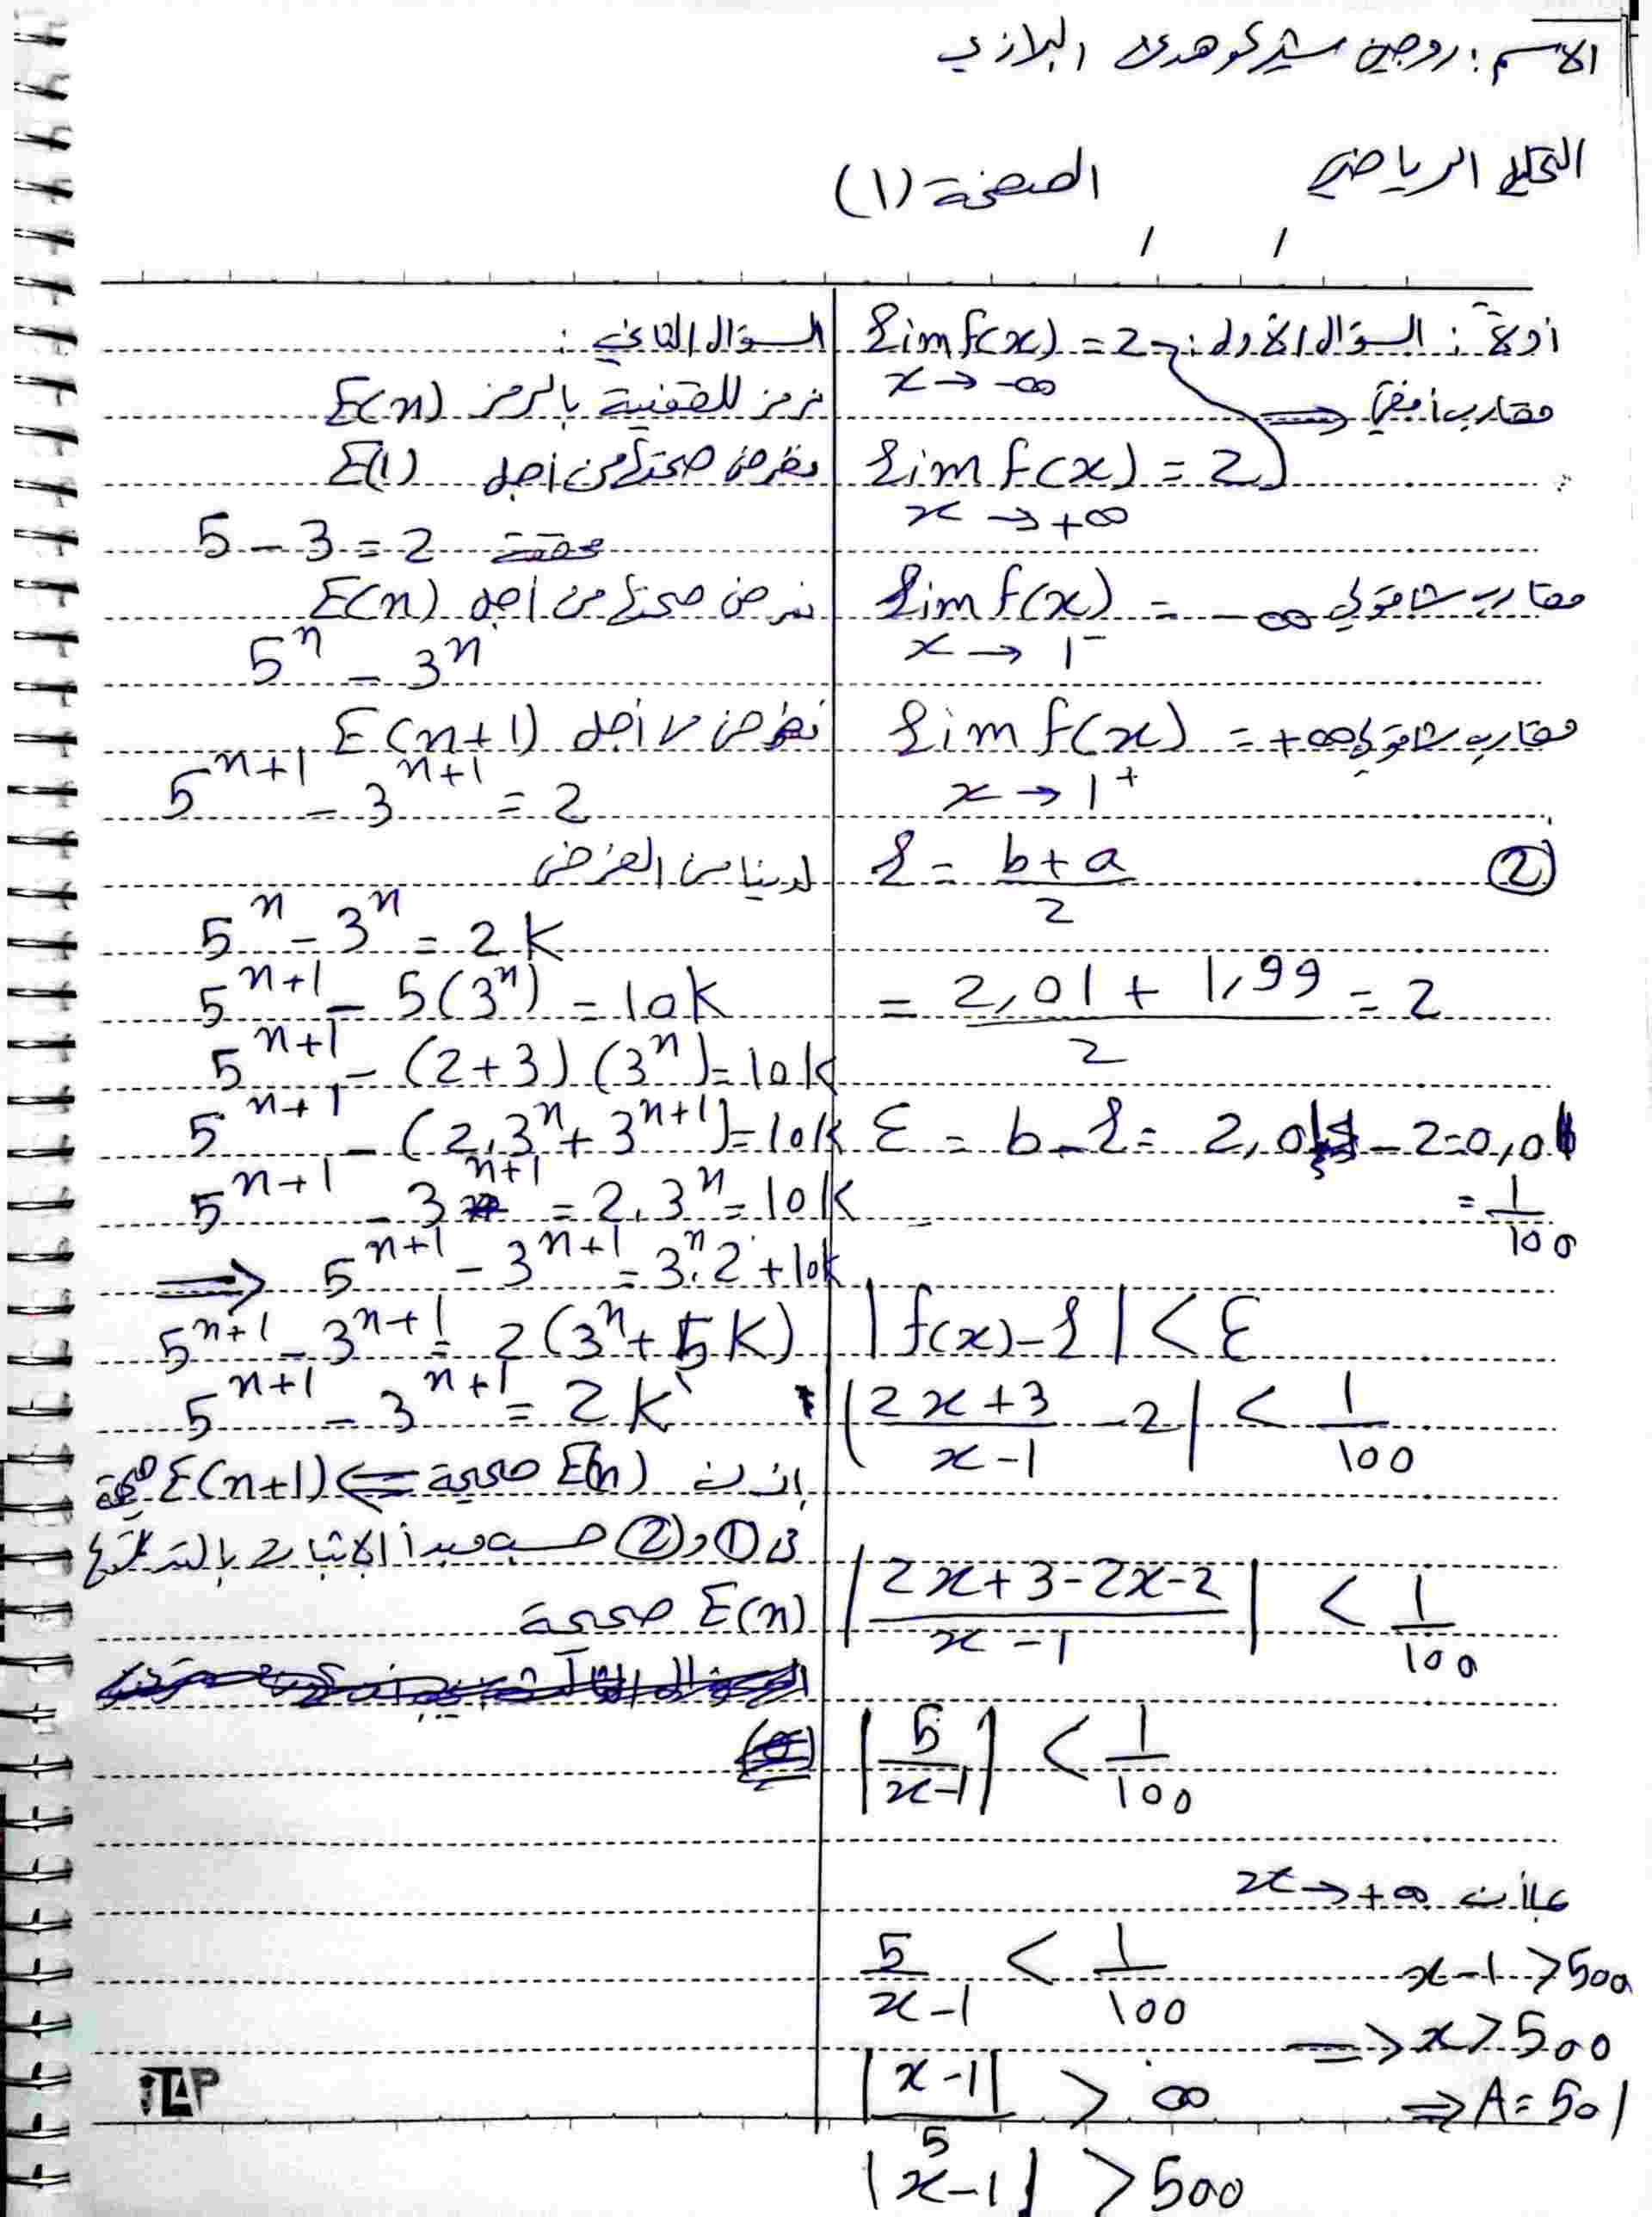 الاسم : روجين شيركو هدى البلازي
التحليل الرياضي
الصفحة (١)
أولاً : السؤال الأول :
lim f(x) = 2
x → -∞
مقارب أفقي ⇐
lim f(x) = 2
x → +∞
lim f(x) = -∞ مقارب شاقولي
x → 1⁻
lim f(x) = +∞ مقارب شاقولي
x → 1⁺
②
l = (b+a)/2
= (2,01 + 1,99)/2 = 2
ε = b - l = 2,01 - 2 = 0,01
= 1/100
|f(x) - l| < ε
|(2x+3)/(x-1) - 2| < 1/100
|(2x+3-2x-2)/(x-1)| < 1/100
|5/(x-1)| < 1/100
بما أن x → +∞
5/(x-1) < 1/100
x-1 > 500
⇒ x > 500
|x-1|/5 > ∞
⇒ A = 501
|x-1| > 500
السؤال الثاني :
نرمز للقضية بالرمز E(n)
نفرض صحتها من أجل E(1)
5 - 3 = 2 محققة
نفرض صحتها من أجل E(n)
5ⁿ - 3ⁿ
نفرض من أجل E(n+1)
5ⁿ⁺¹ - 3ⁿ⁺¹ = 2
لدينا من الفرض
5ⁿ - 3ⁿ = 2K
5ⁿ⁺¹ - 5(3ⁿ) = 10K
5ⁿ⁺¹ - (2+3)(3ⁿ) = 10K
5ⁿ⁺¹ - (2.3ⁿ + 3ⁿ⁺¹) = 10K
5ⁿ⁺¹ - 3ⁿ⁺¹ = 2.3ⁿ = 10K
⇒ 5ⁿ⁺¹ - 3ⁿ⁺¹ = 3ⁿ.2 + 10K
5ⁿ⁺¹ - 3ⁿ⁺¹ = 2(3ⁿ + 5K)
5ⁿ⁺¹ - 3ⁿ⁺¹ = 2K`
إذن E(n) صحيحة ⇐ E(n+1) صحيحة
من ① و ② حسب مبدأ الإثبات بالتدريج
E(n) صحيحة
iTAP